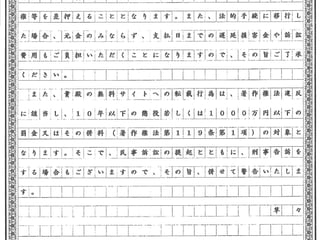 権等を差押えることとなります。また、法的手続に移行し
た場合、元金のみならず、支払日までの遅延損害金や訴訟
費用もご負担いただくことになりますので、その旨ご了承
ください。
また、貴殿の無料サイトへの転載行為は、著作権法違反
に該当し、10年以下の懲役若しくは1000万円以下の
罰金又はその併科(著作権法第119条第1項)の対象と
なります。そこで、民事訴訟の提起とともに、刑事告訴を
する場合もございますので、その旨、併せて警告いたしま
す。
草々